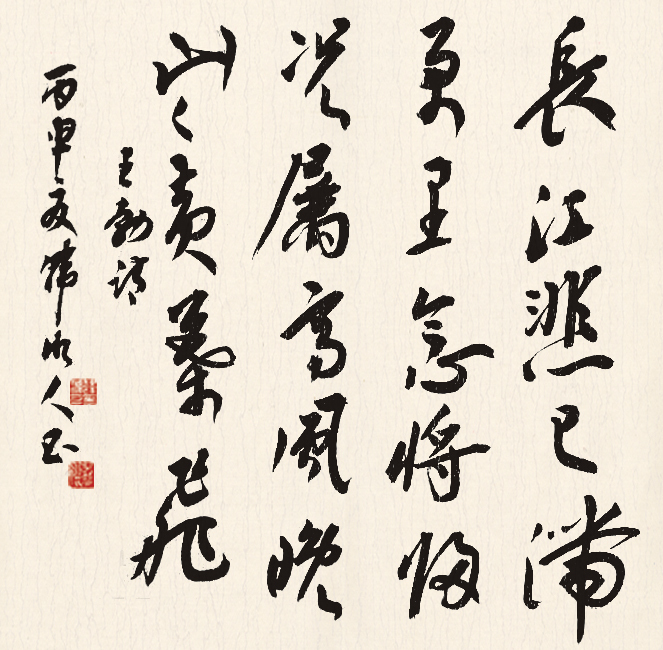 長江悲已滯
萬里念將歸
況屬高風晚
山々黃葉飛
王勃詩
丙申夏人书